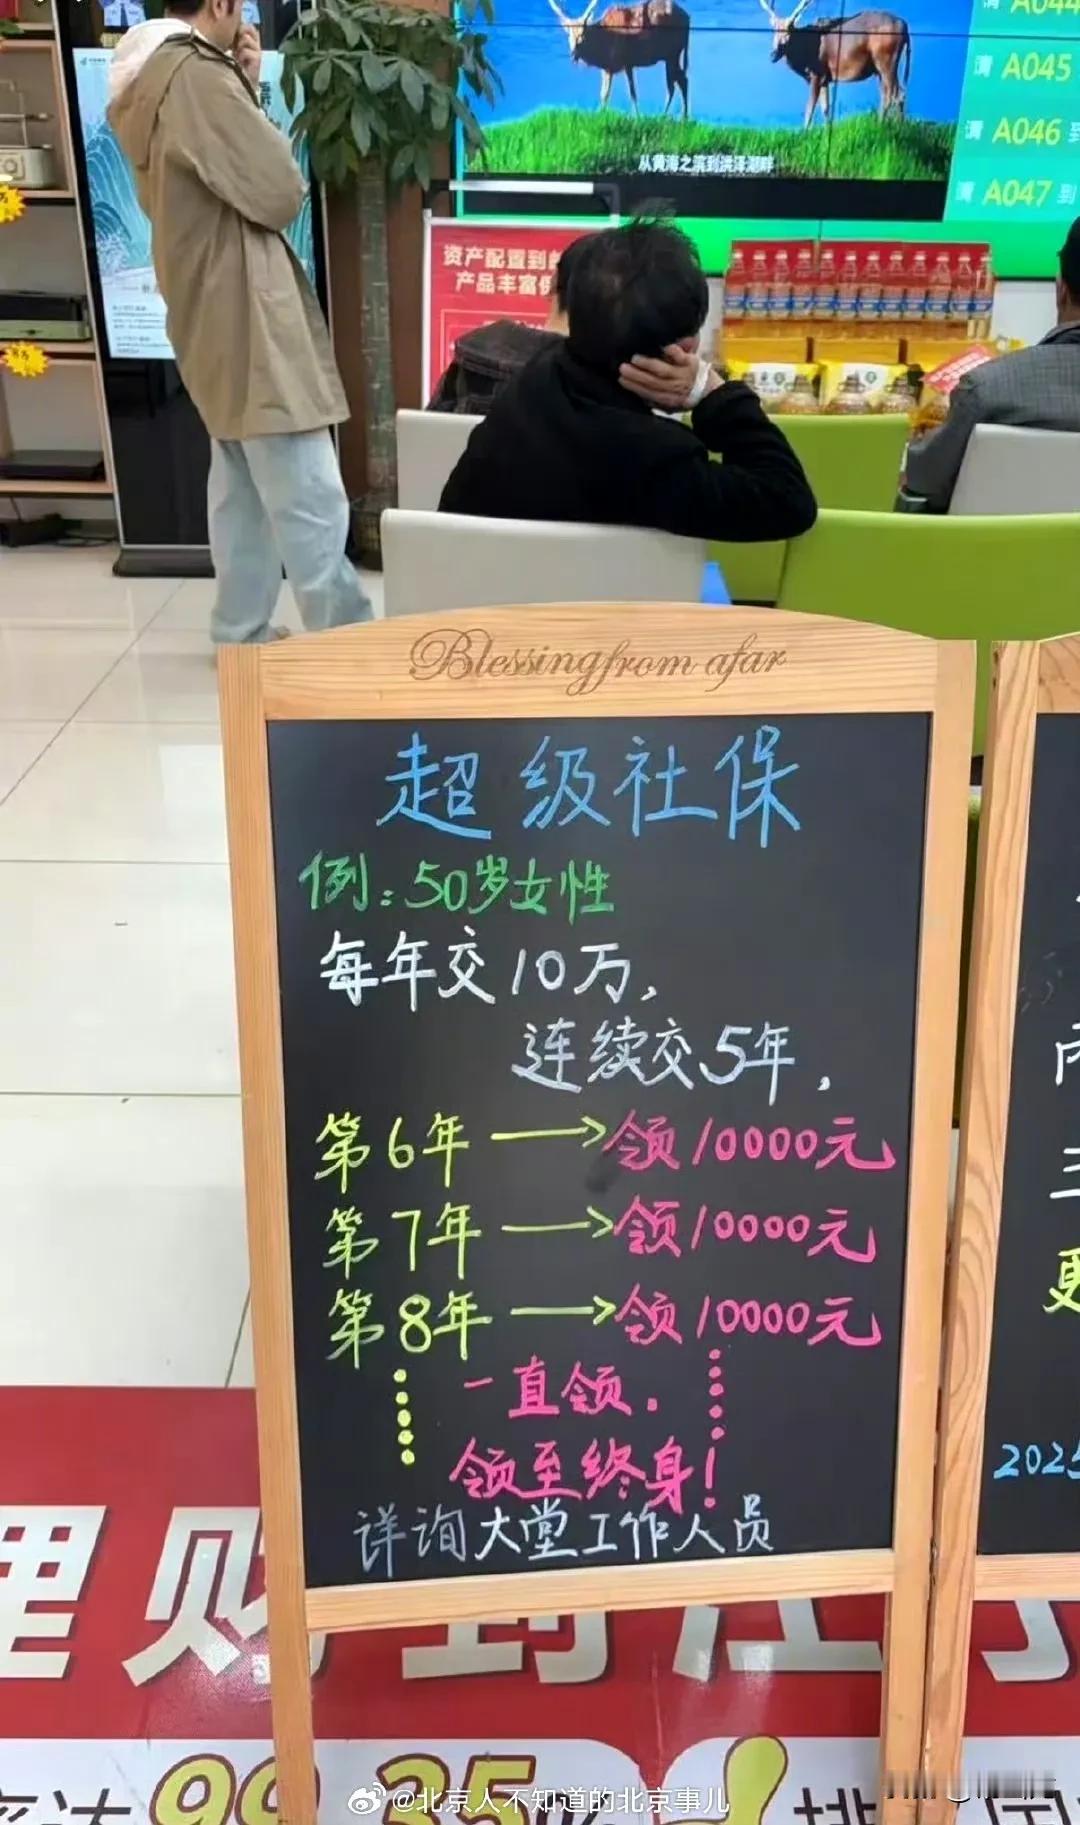 请 A044
请 A045
请 A046 到
请 A047 到
从黄海之滨到洪泽湖畔
资产配置到
产品丰富
Blessing from afar
超级社保
例:50岁女性
每年交10万,
连续交5年,
第6年→领10000元
第7年→领10000元
第8年→领10000元
一直领.
领至终身!
详询大堂工作人员
三
更
2025
理财到江
达99.35%
@北京人不知道的北京事儿